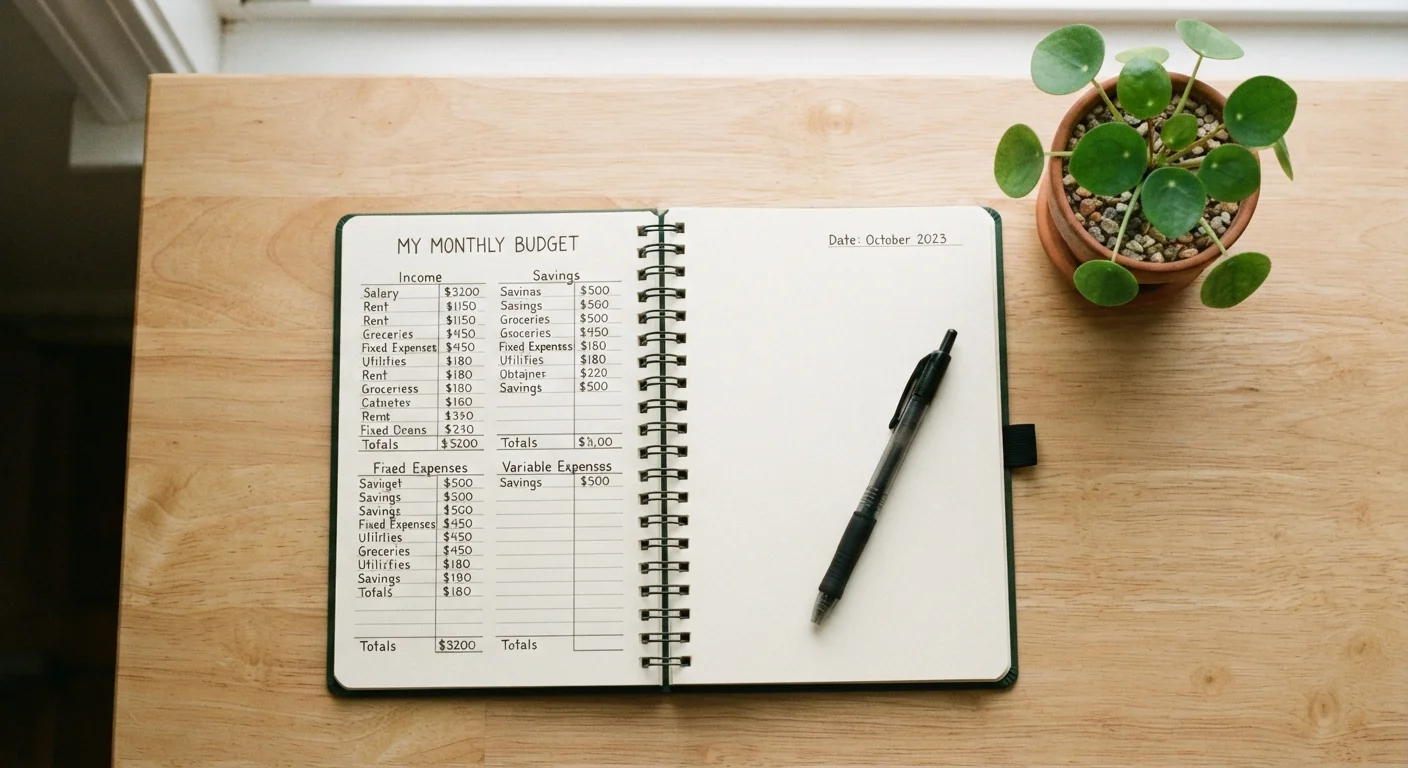 MY MONTHLY BUDGET
Income
Salary $3200
Rent $1150
Rent $1150
Greceries $450
Fixed Expenses $450
Utilifies $180
Rent $180
Groceriess $180
Catnetes $160
Remt $350
Fixed Deans $230
Tofals $5200
Savings
Savinas $500
Sasings $500
Groceries $500
Gsoceries $450
Fixed Expensss $180
Utilifies $180
Obtajner $220
Savings $500
Totals
Fixed Expenses
Saviget $500
Savings $500
Savings $500
Fixed Expenses $450
Utilities $450
Greceries $450
Utilifies $180
Savings $190
Tofals $180
Totals $3200
Variable Expensss
Savings $500
Totals
Date: October 2023